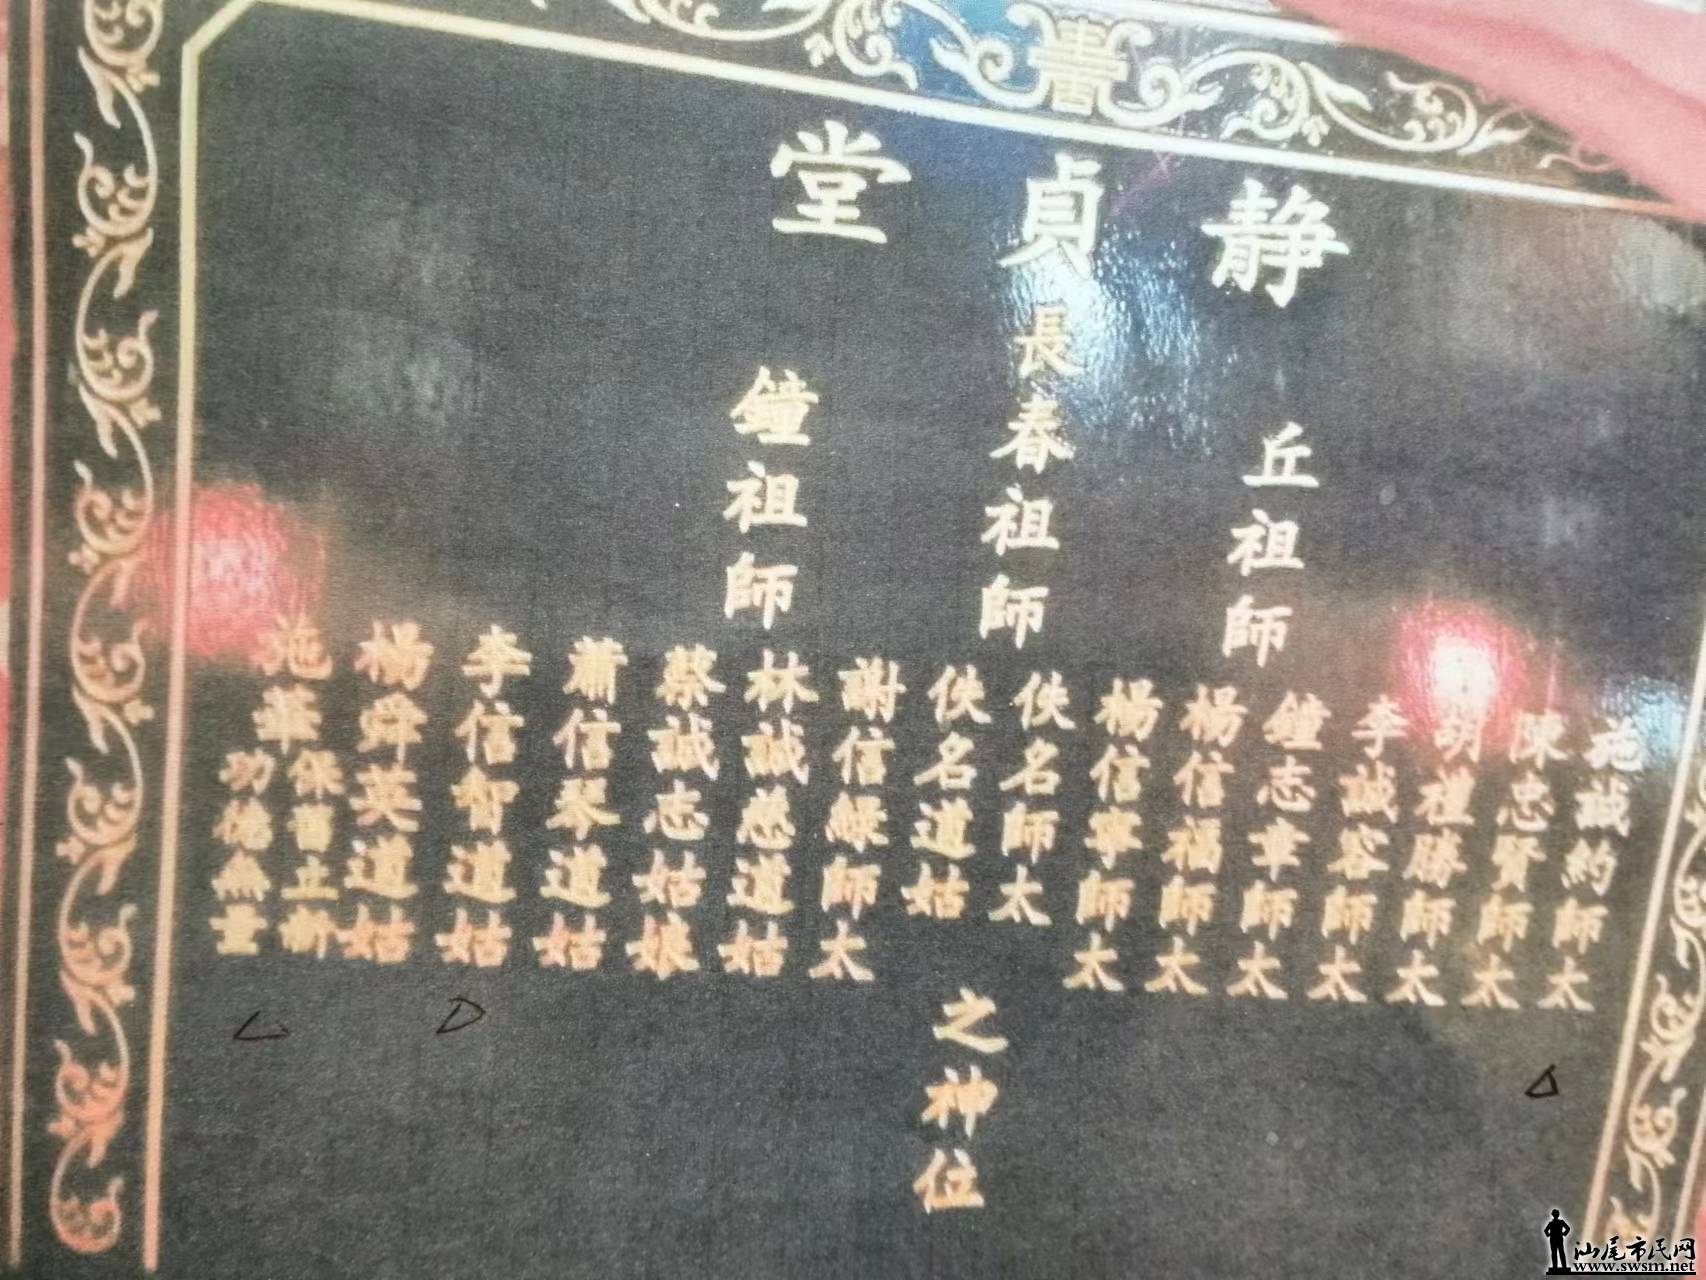 静貞堂
丘祖師
長春祖師
鐘祖師
施誠約師太
陳忠賢師太
胡祖勝師太
李誠容師太
鐘志幸師太
楊信福師太
楊信寧師太
佚名師太
佚名道姑
謝信綠師太
林誠慈道姑
蔡誠志姑娘
蕭信琴道姑
李信智道姑
楊舜英道姑
施華
功德無量
之神位
汕尾市民网
www.swsm.net